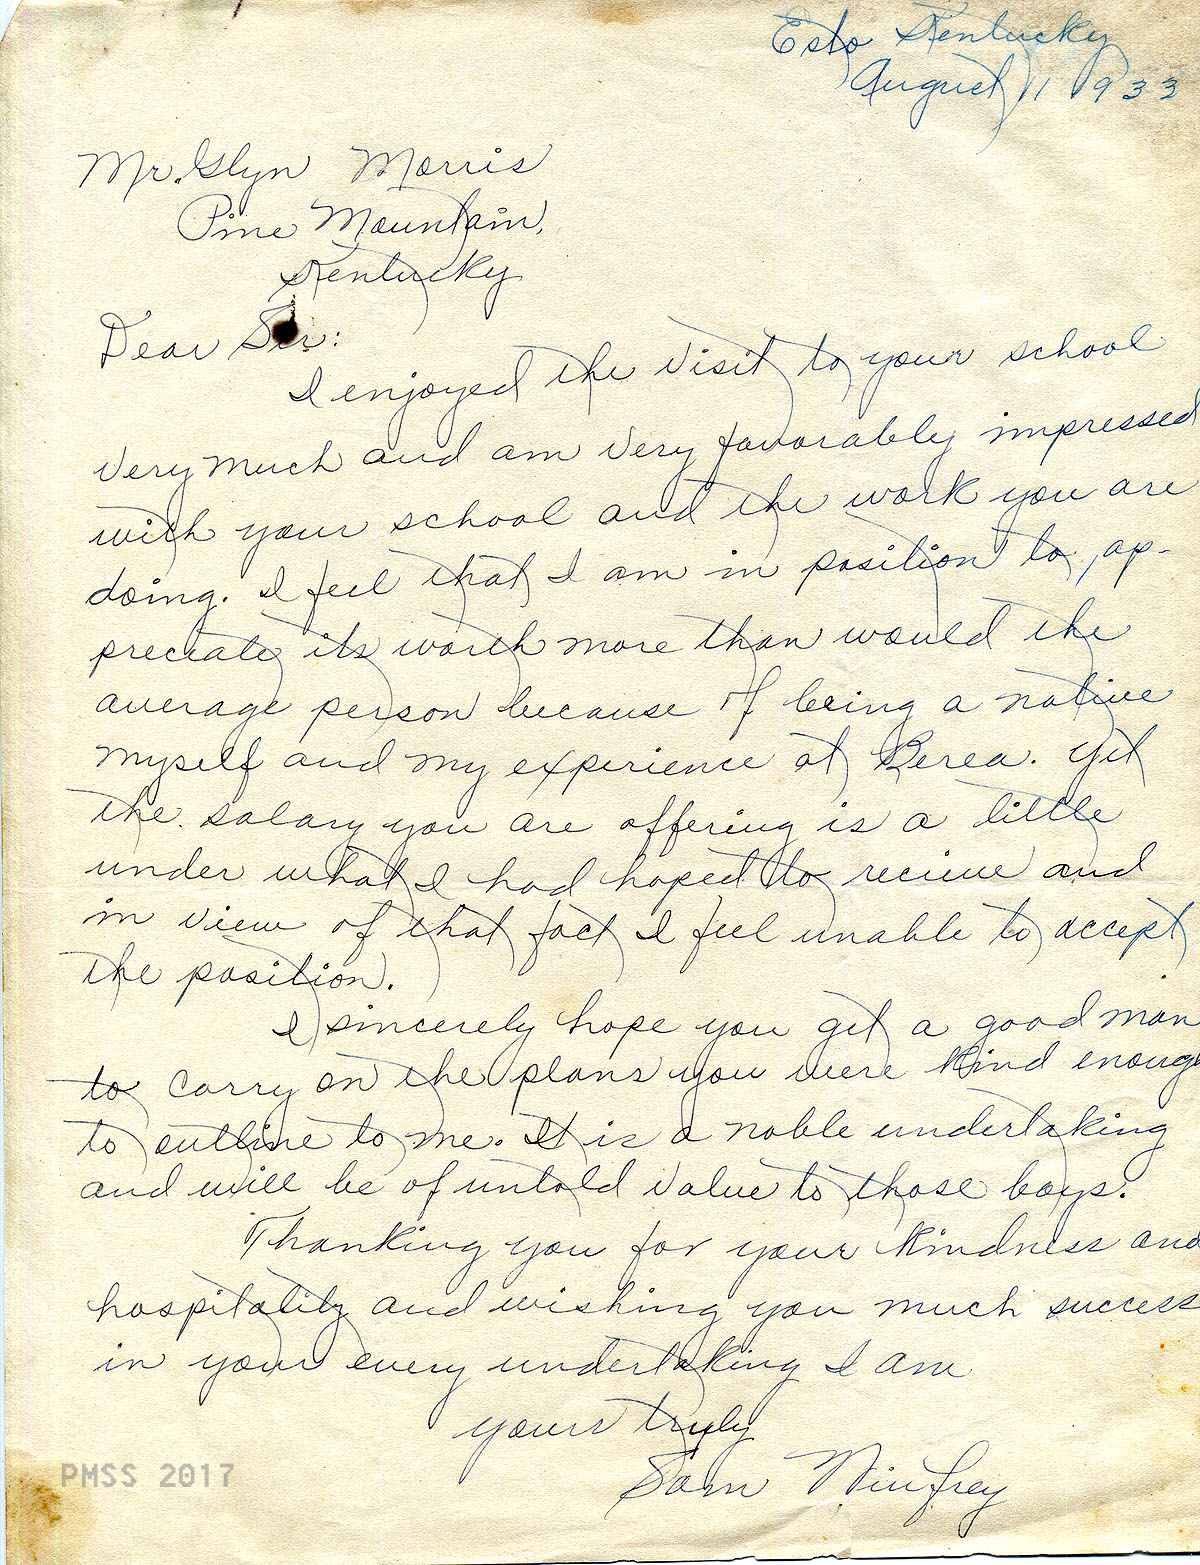 Esto Kentucky
August 11 1933
Mr. Glyn Morris
Pine Mountain,
Kentucky
Dear Sir:
I enjoyed the visit to your school
very much and am very favorably impressed
with your school and the work you are
doing. I feel that I am in position to ap-
preciate its worth more than would the
average person because of being a native
myself and my experience at Berea. Yet
the salary you are offering is a little
under what I had hoped to recieve and
in view of that fact I feel unable to accept
the position.
I sincerely hope you get a good man
to carry on the plans you were kind enough
to outline to me. It is a noble undertaking
and will be of untold value to those boys.
Thanking you for your kindness and
hospitality and wishing you much success
in your every undertaking I am
yours truly
Sam Winfrey
PMSS 2017